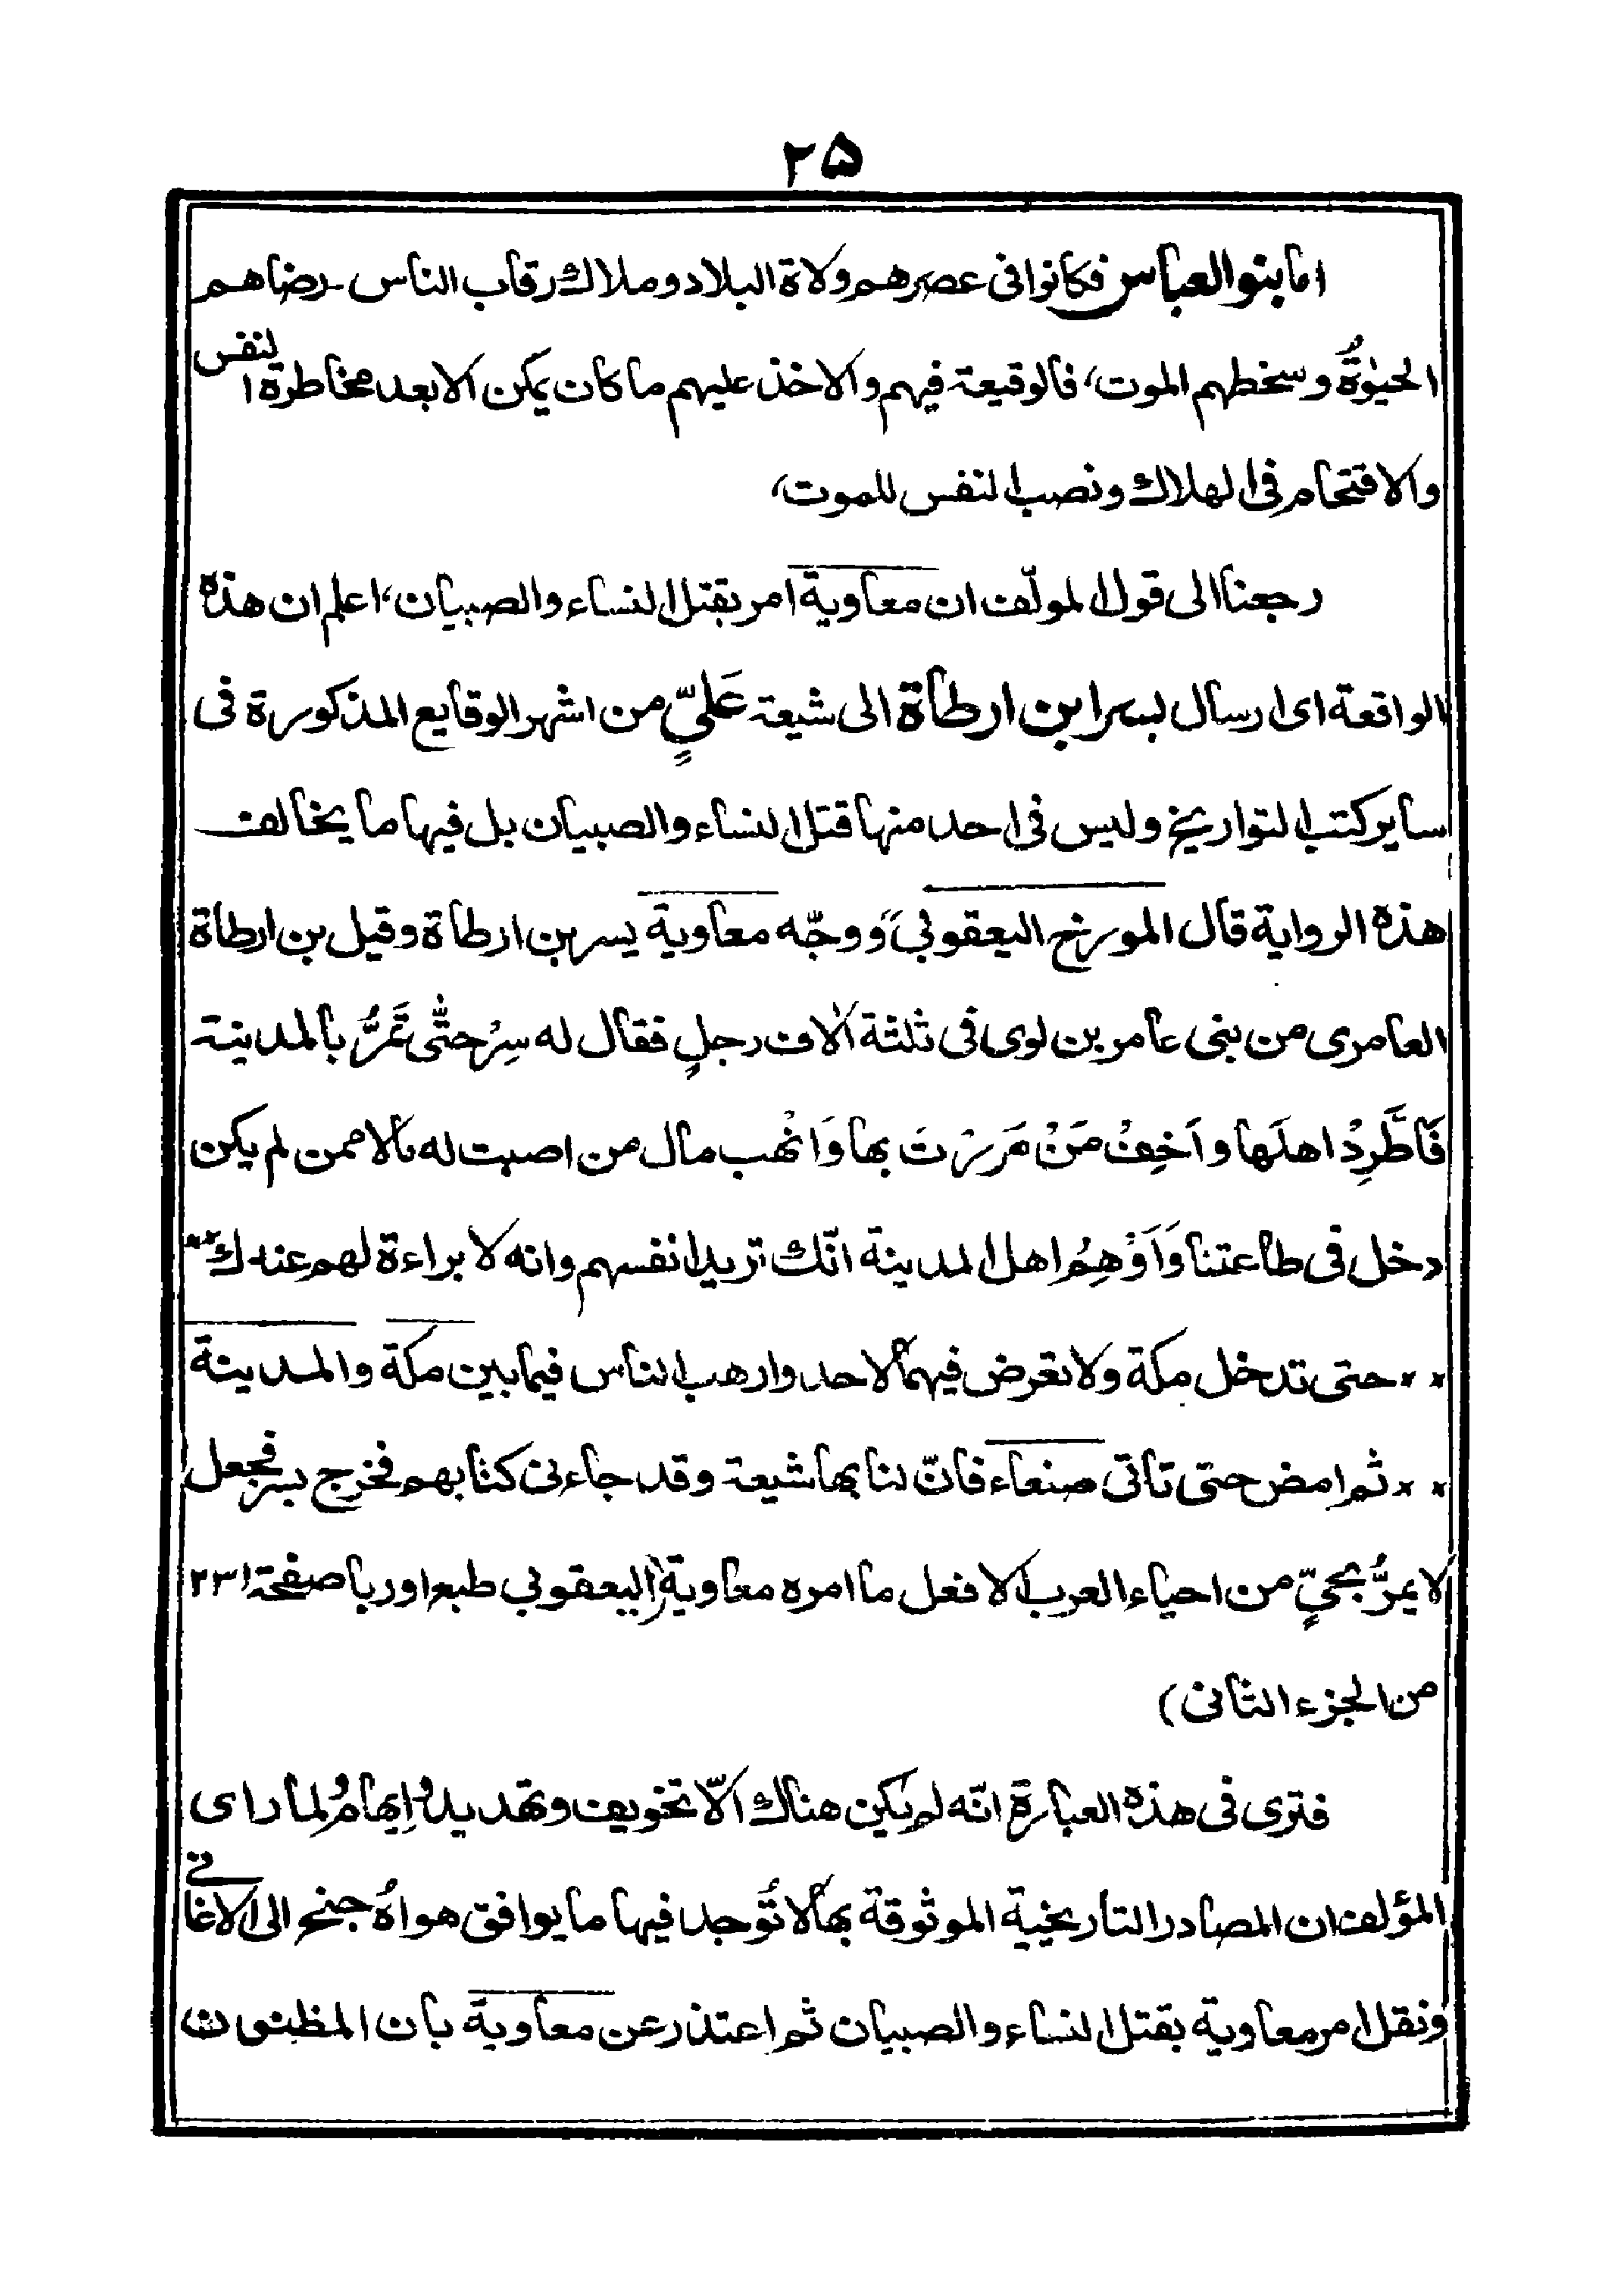 ۲۵
اما بنو العباس فكانوا فى عصرهم ولاة البلاد وملاك رقاب الناس رضاهم
الحيٰوةُ وسخطهم الموت، فالوقيعة فيهم والاخذ عليهم ما كان يمكن الا بعد مخاطرة النفس
والاقتحام فى الهلاك ونصب النفس للموت،
رجعنا الى قول المولّف ان معاوية امر بقتل النساء والصبيان، اعلم ان هذه
الواقعة اى ارسال بسر ابن ارطاة الى شيعة عَليٍّ من اشهر الوقايع المذكورة فى
ساير كتب التواريخ وليس فى احد منها قتل النساء والصبيان بل فيها ما يخالف
هذه الرواية قال المورخ اليعقوبي ”ووجّه معاوية بسر بن ارطاة وقيل بن ارطاة
العامرى من بنى عامر بن لوى فى ثلثة اٰلاف رجلٍ فقال له سِرْ حتّٰى تَمَرُّ بالمدينة
فَاطَّرِدْ اهلَها واَخِفْ مَنْ مَرَرْتَ بها وَانْهب مال من اصبت له مالا ممن لم يكن
دخل فى طاعتنا وَاَوْهِمُ اهل المدينة انّك تريد انفسهم وانه لا براءة لهم عندك **
** حتى تدخل مكة ولا تعرض فيها لاحد وارهب الناس فيما بين مكة والمدينة
** ثم امض حتى تاتى صنعاء فانّ لنا بها شيعة وقد جاءنى كتابهم فخرج بسر فجعل
لا يمرُّ بحيٍّ من احياء العرب الا فعل ما امره معاوية (اليعقوبي طبع اوربا صفحة ۲۳۱
من الجزء الثانى)
فترى فى هذه العبارة انّه لم يكن هناك الّا تخويف وتهديد وُاِيهامُ لما راى
المؤلف ان المصادر التاريخية الموثوقة بها لا تُوجد فيها ما يوافق هواهُ جنح الى الاغانى
ونقل امر معاوية بقتل النساء والصبيان ثم اعتذر عن معاوية بان المظنون ان